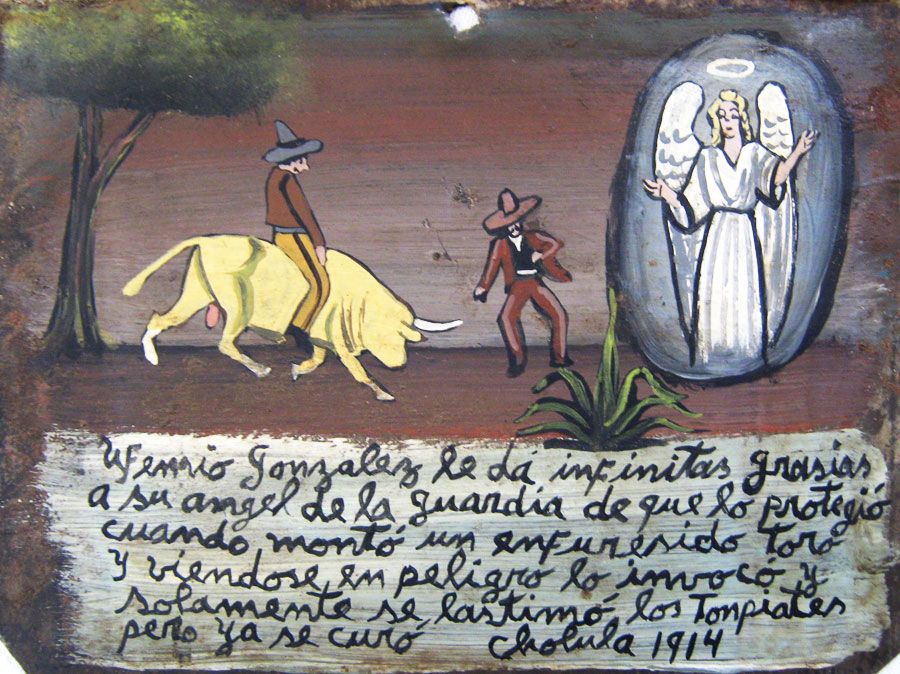 Ufemio Gonzalez le dá infinitas grasias
a su angel de la guardia de que lo protegió
cuando montó un enfuresido toro
y viendose en peligro lo invocó y
solamente se lastimó los Tonpiates
pero ya se curó Cholula 1914